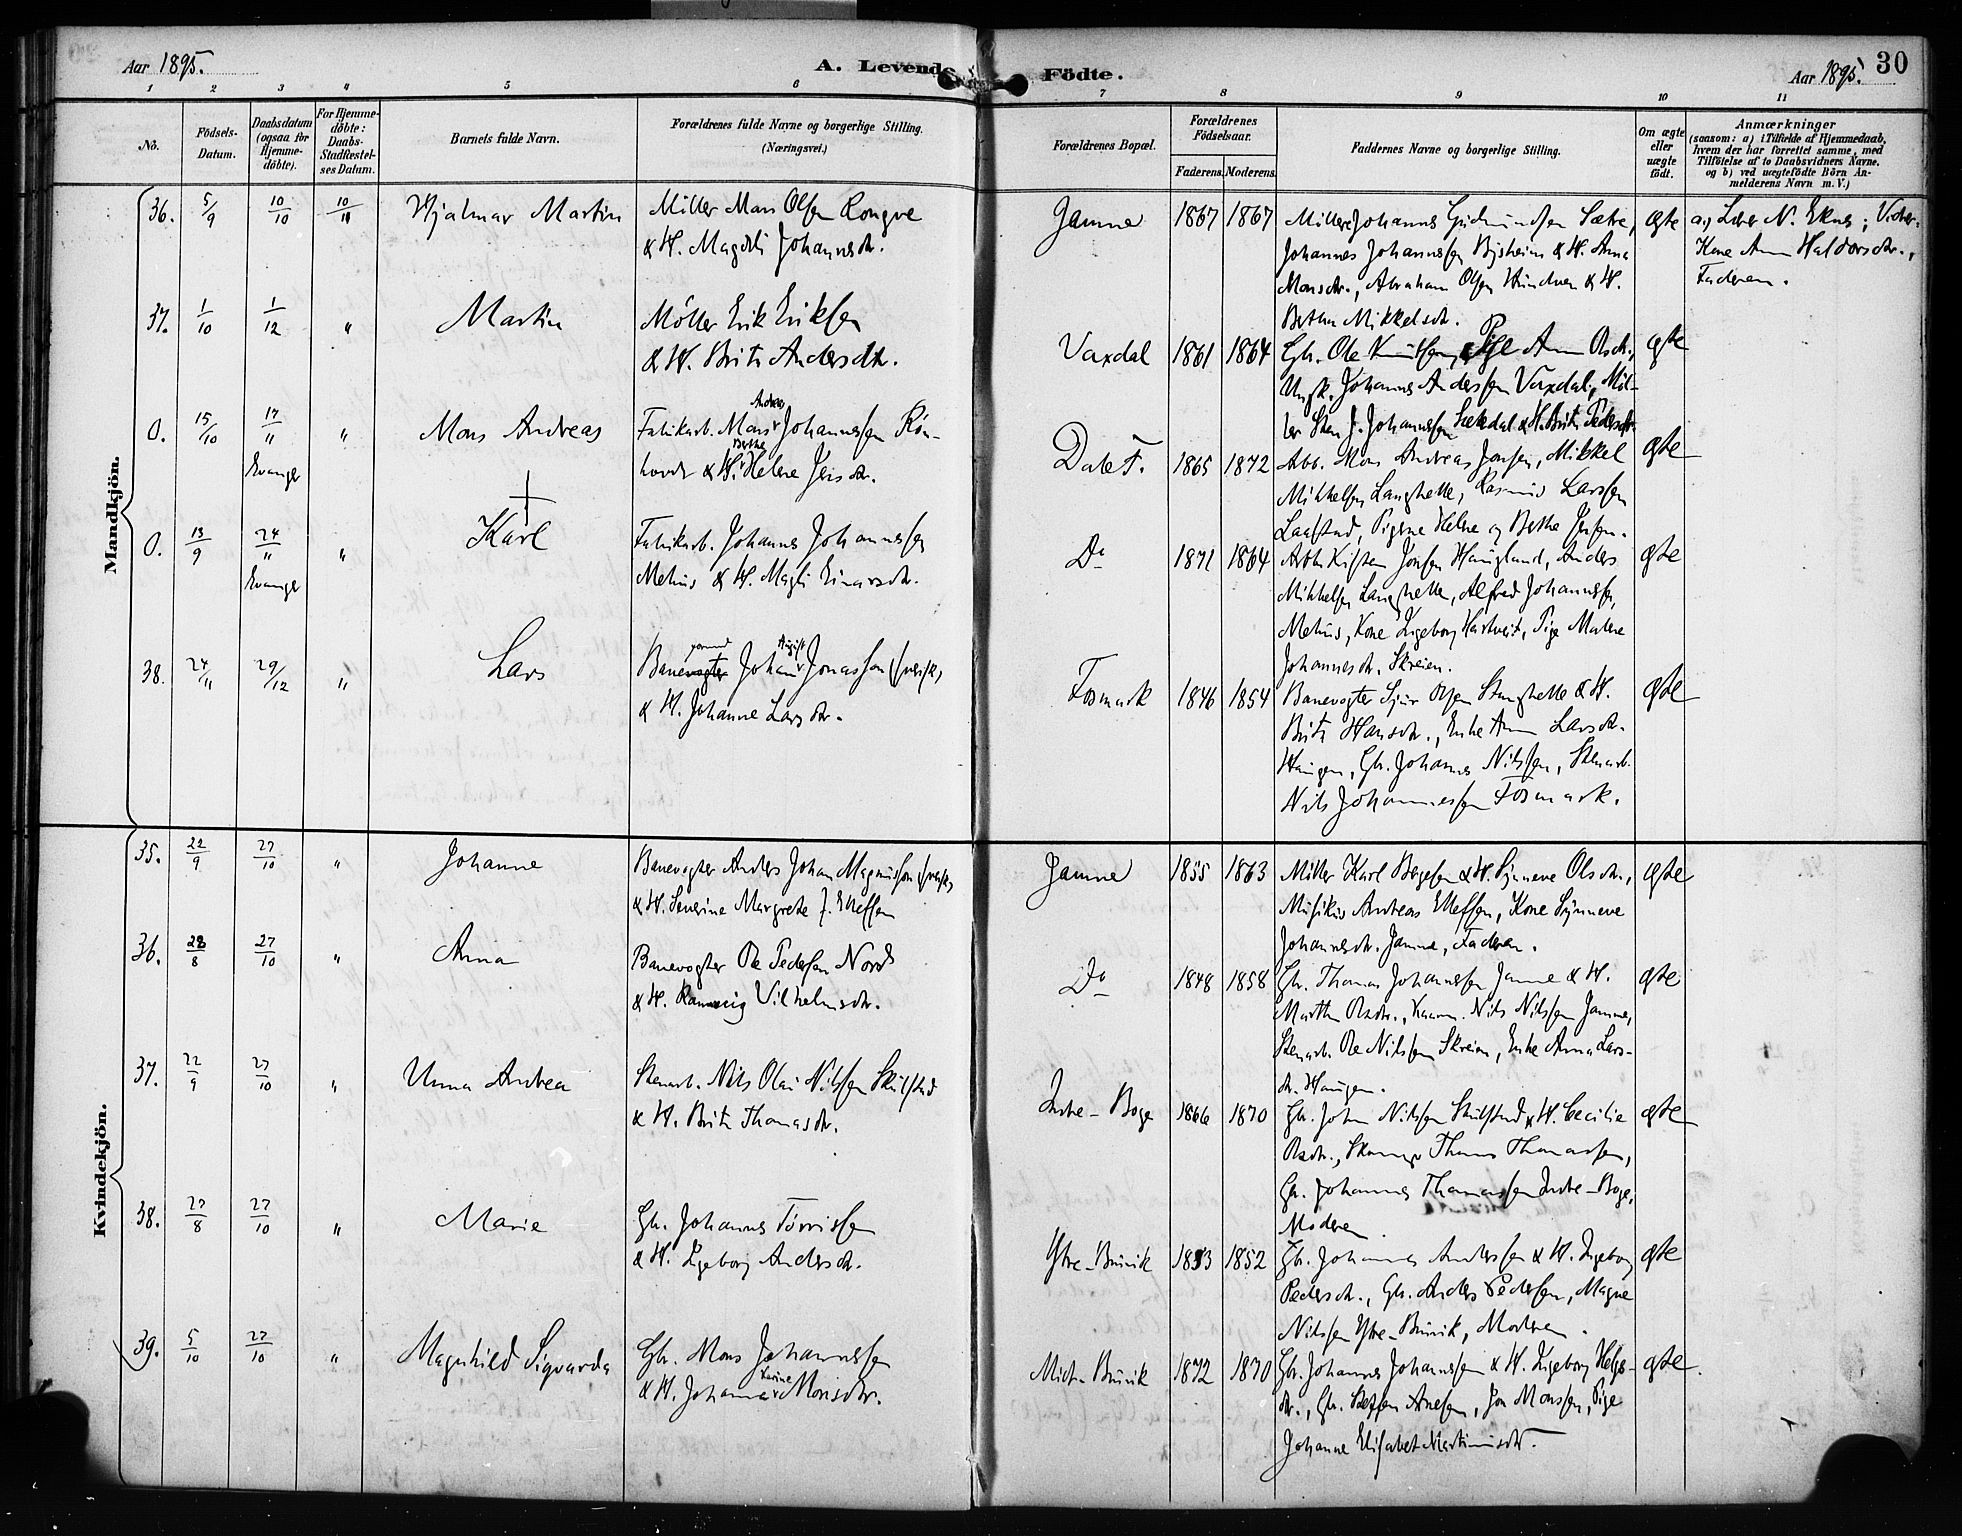 Aar 1895.
A. Levende
Födte.
Aar 1895.
30
1 2 3 4 5 6 7 8 9 10 11
No.
Födsels-Datum.
Daabsdatum (ogsaa for Hjemmedöbte).
For Hjemmedöbte: Daabs-Stadfestelses Datum.
Barnets fulde Navn.
Forældrenes fulde Navne og borgerlige Stilling. (Næringsvei.)
Forældrenes Bopæl.
Forældrenes Födselsaar.
Faderens. Moderens.
Faddernes Navne og borgerlige Stilling.
Om ægte eller uægte födt.
Anmærkninger
(saasom: a) i Tilfælde af Hjemmedaab, hvem der har forrettet samme, med Tilföielse af to Daabsvidners Navne. og b) ved uægtefödte Börn Anmelderens Navn m. V.)
Mandkjön.
36. 5/9 10/10 Hjalmar Martin
Miller Mons Olsen Rongve
& H. Magdli Johannesdr.
Jamne 1867 1867
Millere Johannes Gudmundsen Sætre,
Johannes Johannessen Bysheim & H. Anna
Monsdr., Abraham Olsen Hundven & H.
Bertha Mikkelsdr.
ægte
a) Lærer N. Eknes; Vidner:
Kone Anna Haldorsdr.,
Faderen.
37. 1/10 1/12 " Martin
Möller Erik Eriksen
& H. Brita Andersdtr.
Vaxdal 1861 1864
Gbr. Ole Knutsen, Pige Anna Olsdr.,
Ungk. Johannes Andersen Vaxdal, Mil-
ler Sten J. Johannessen Sætedal & H. Brita Pedersdr.
ægte
0. 15/10 17/11 " Mons Andreas
Evanger
Fabrikarb. Mons Andreas Johannessen Rön-
hovde & H. Berthe Helene Jensdr.
Dale F. 1865 1872
Arb. Mons Andreas Jensen, Mikkel
Mikkelsen Langhelle, Rasmus Larssen
Laastad, Pigerne Helene og Berthe Jensen.
ægte
0. 13/9 24/11 " Karl
Evanger
Fabrikarb. Johannes Johannessen
Melius & H. Magli Einarsdr.
Do 1871 1864
Arb. Kristen Jonsen Haugland, Anders
Mikkelsen Langhelle, Alfred Johannessen
Melius, Kone Ingeborg Hartveit, Pige Malene
Johannesdr. Skreien.
ægte
38. 24/11 29/12 " Lars
Baneformand Johan August Jonasson (svensk)
& H. Johanne Larsdr.
Fosmark 1846 1854
Banevogter Sjur Olsen Stanghelle & H.
Brita Hansdr., Enke Anna Larsdr.
Haugen, Gbr. Johannes Nilssen, Stenarb.
Nils Johannessen Fosmark.
ægte
Kvindekjön.
35. 22/9 27/10 " Johanne
Banevogter Anders Johan Magnusson (svensk)
& H. Severine Margrete f. Ellefsen
Jamne 1855 1863
Miller Karl Børgesen & H. Synneve Olsdr.,
Musikus Andreas Ellefsen, Kone Synneve
Johannesdr. Jamne, Faderen.
ægte
36. 28/8 27/10 " Anna
Banevogter Ole Pedersen Nord
& H. Rannveig Vilhelmsdr.
Do 1848 1858
Gbr. Thomas Johannessen Jamne & H.
Martha Olsdr., Kaarm. Nils Nilssen Jamne,
Stenarb. Ole Nilssen Skreien, Enke Anna Lars-
dr. Haugen.
ægte
37. 22/9 27/10 " Unna Andrea
Stenarb. Nils Olai Nilssen Skulstad
& H. Brita Thomasdr.
Indre-Boge 1866 1870
Gbr. John Nilssen Skulstad & H. Cecilia
Olsdr., Skomager Thomas Thomassen,
Gbr. Johannes Thomassen Indre-Boge,
Moderen.
ægte
38. 27/8 27/10 " Marie
Gbr. Johannes Torrissen
& H. Ingeborg Andersdr.
Ytre-Bruvik 1853 1852
Gbr. Johannes Andersen & H. Ingeborg
Pedersdr., Gbr. Anders Pedersen, Magne
Nilssen Ytre-Bruvik, Moderen.
ægte
39. 5/10 27/10 " Magnhild Sigvarda
Gbr. Mons Johannessen
& H. Johanna Karine Monsdr.
Midt-Bruvik 1872 1870
Gbr. Johannes Johannessen & H. Ingeborg Helge-
dr., Gbr. Steffen Arnesen, Jon Monssen, Pige
Johanne Elisabet Martinusdr.
ægte.